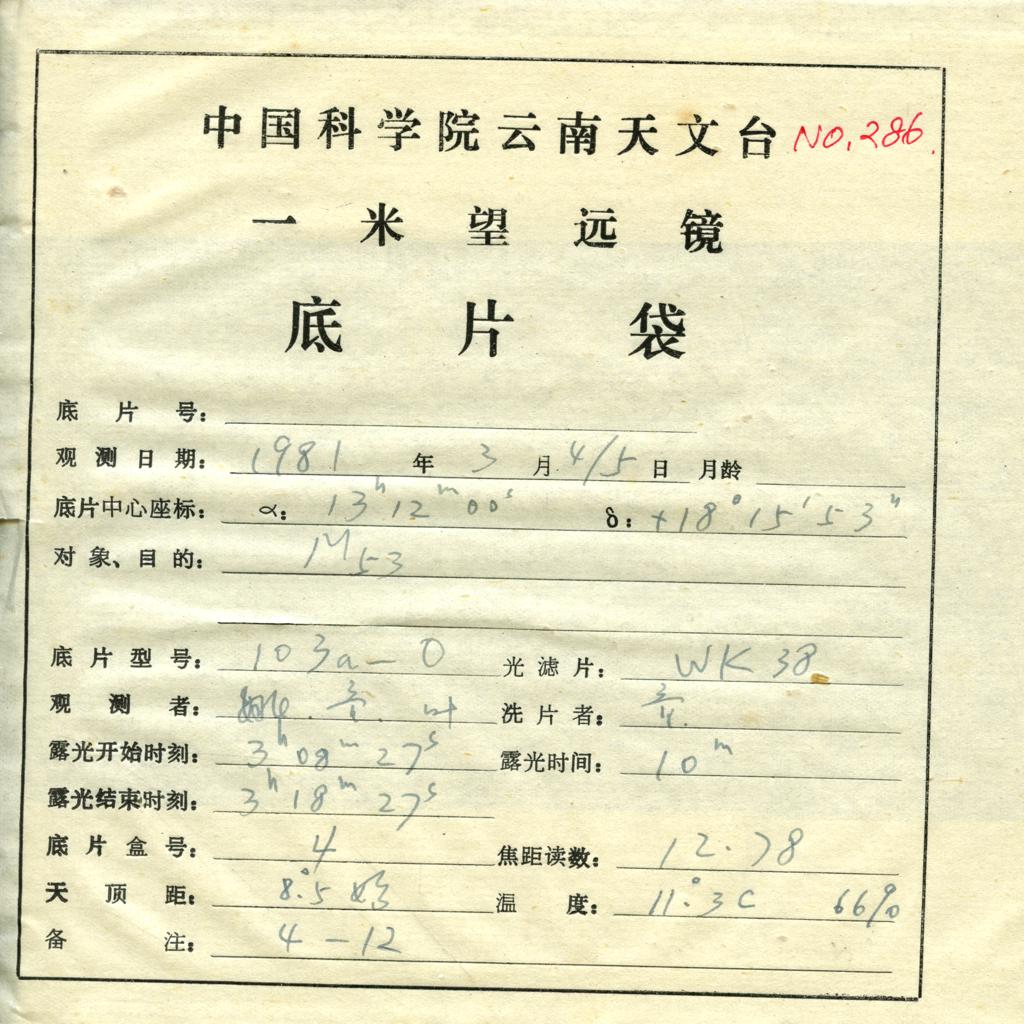 中国科学院云南天文台 NO.286.
一米望远镜
底片袋
底片号:
观测日期: 1981 年 3 月 4/5 日 月龄
底片中心座标: α: 13h 12m 00s δ: +18° 15′ 53″
对象、目的: M53
底片型号: 103a-O 光滤片: WK 38
观测者: 叶 洗片者:
露光开始时刻: 3h 08m 27s 露光时间: 10m
露光结束时刻: 3h 18m 27s
底片盒号: 4 焦距读数: 12.78
天顶距: 8°.5 温度: 11°.3C 66%
备注: 4-12